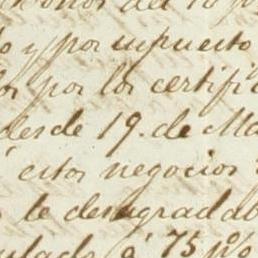 del 10 p
o y por supuesto
por los certifi
desde 19. de Ma
estos negocios
te desagradab
á 75 p%